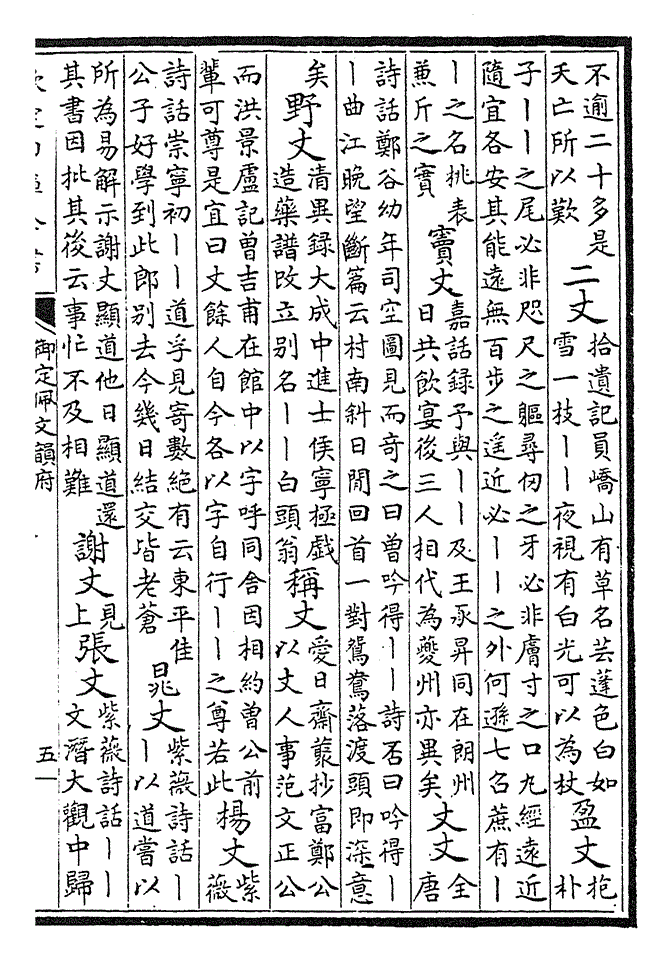 不逾二十多是
夭亡所以歎
二丈
拾遺記員嶠山有草名芸蓬色白如
雪一枝丨丨夜視有白光可以為杖
盈丈
抱
朴
子丨丨之尾必非咫尺之軀尋仞之牙必非膚寸之口九經遠近
隨宜各安其能遠無百步之遥近必丨丨之外何遜七召蔗有丨
丨之名桃表
兼斤之實
竇丈
嘉話録予與丨丨及王承昇同在朗州
日共飲宴後三人相代為夔州亦異矣
丈丈
全
唐
詩話鄭谷幼年司空圖見而奇之曰曽吟得丨丨詩否曰吟得丨
丨曲江晚望斷篇云村南斜日閒回首一對鴛鴦落渡頭即深意
矣
野丈
清異録大成中進士侯寧極戲
造藥譜改立别名丨丨白頭翁
稱丈
愛日齋藂抄富鄭公
以丈人事范文正公
而洪景盧記曽吉甫在館中以字呼同舍因相約曽公前
輩可尊是宜曰丈餘人自今各以字自行丨丨之尊若此
楊丈
紫
薇
詩話崇寧初丨丨道孚見寄數絶有云東平佳
公子好學到此郎别去今幾日結交皆老蒼
晁丈
紫薇詩話丨
丨以道嘗以
所為易解示謝丈顯道他日顯道還
其書因批其後云事忙不及相難
謝丈
見
上
張丈
紫薇詩話丨丨
文潛大觀中歸
欽定四庫全書
御定佩文韻府
五